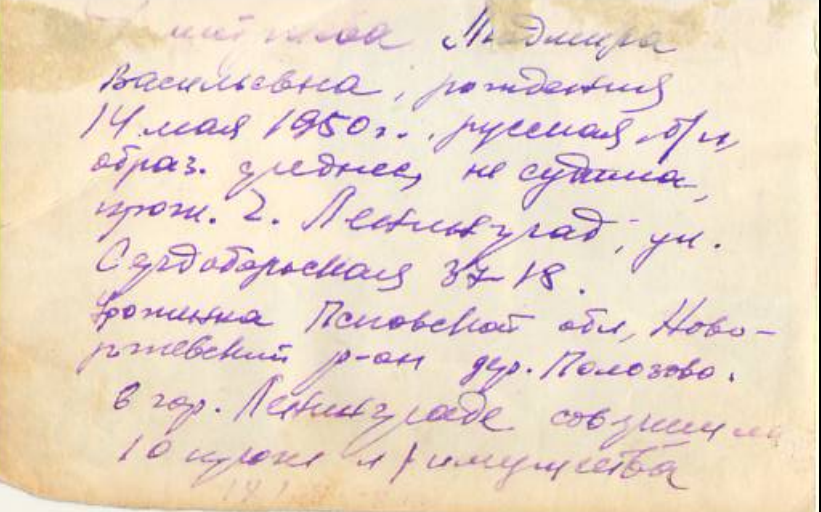 Людмира
Васильевна, рождения
14 мая 1950г., русская, б/п,
образ. среднее, не судима,
прож. г. Ленинград, ул.
Сердобольская 37-18.
урожинка Псковской обл, Ново-
ржевский р-он дер. Полозово.
в гор. Ленинграде совершила
10 краж л/имущества